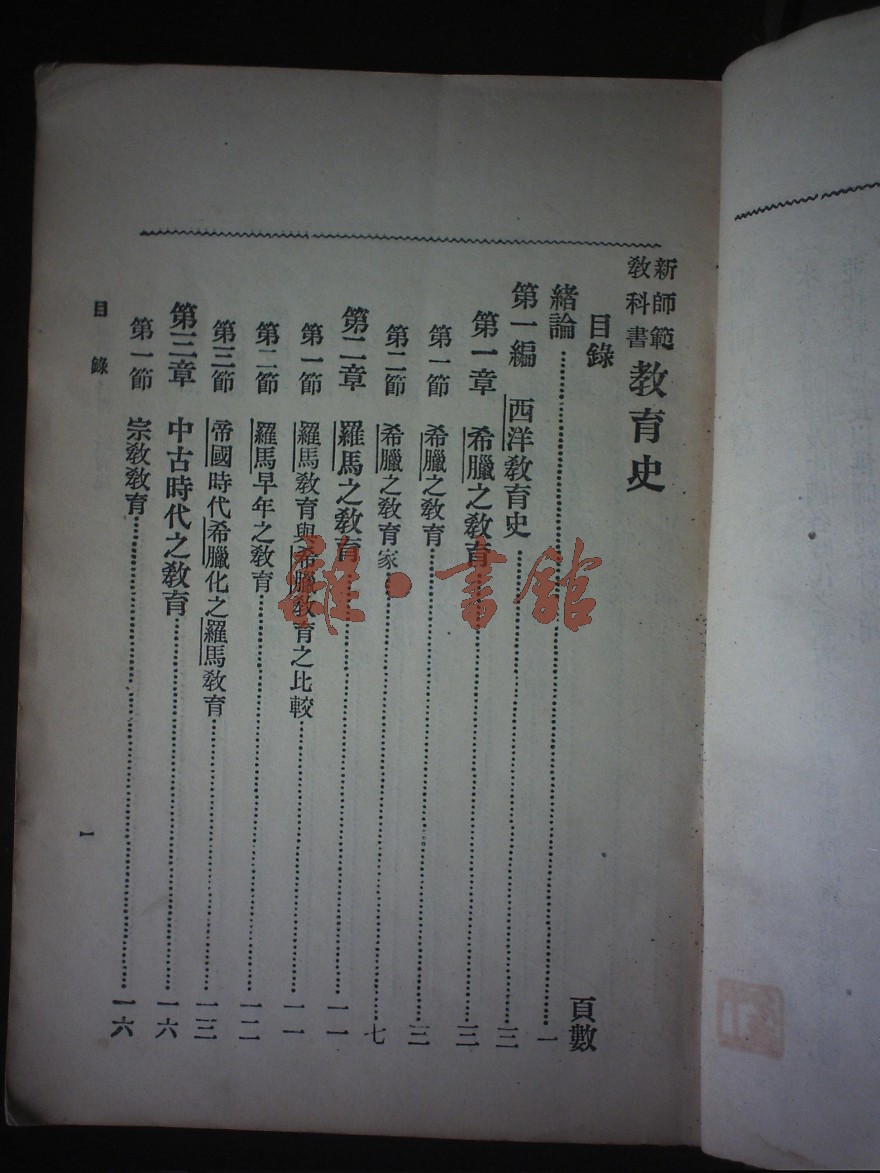 新師範
教科書
教育史
目錄
頁數
緒論……一
第一編 西洋教育史……三
第一章 希臘之教育……三
第一節 希臘之教育……三
第二節 希臘之教育家……七
第二章 羅馬之教育……一一
第一節 羅馬教育與希臘教育之比較……一一
第二節 羅馬早年之教育……一二
第三節 帝國時代希臘化之羅馬教育……一三
第三章 中古時代之教育……一六
第一節 宗教教育……一六
目錄
一
羅·書館